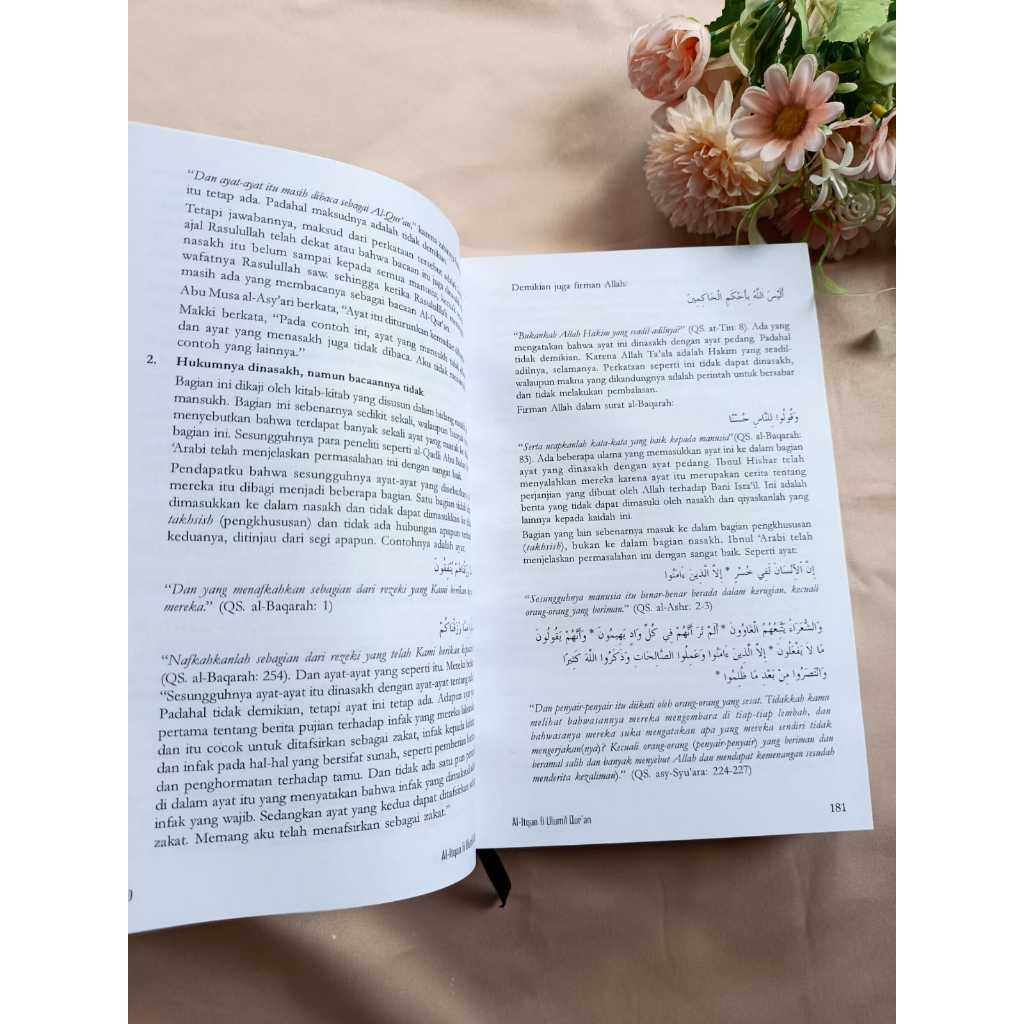 "Dan ayat-ayat itu masih dibaca sebagai Al-Qur'an," karena
itu tetap ada. Padahal maksudnya adalah tidak demikian.
Tetapi jawabannya, maksud dari perkataan tersebut adalah
ajal Rasulullah telah dekat atau bahwa bacaan itu juga
nasakh itu belum sampai kepada semua manusia, kecuali
wafatnya Rasulullah saw. sehingga ketika Rasulullah
masih ada yang membacanya sebagai bacaan Al-Qur'an.
Abu Musa al-Asy'ari berkata, "Ayat itu diturunkan kemudian
Makki berkata, "Pada contoh ini, ayat yang mansukh
dan ayat yang menasakh juga tidak dibaca. Aku tidak
contoh yang lainnya."
2. Hukumnya dinasakh, namun bacaannya tidak
Bagian ini dikaji oleh kitab-kitab yang disusun dalam bidang
mansukh. Bagian ini sebenarnya sedikit sekali, walaupun banyak
menyebutkan bahwa terdapat banyak sekali ayat yang masuk ke
bagian ini. Sesungguhnya para peneliti seperti al-Qadli Abu Bakar
'Arabi telah menjelaskan permasalahan ini dengan sangat baik.
Pendapatku bahwa sesungguhnya ayat-ayat yang disebutkan
mereka itu dibagi menjadi beberapa bagian. Satu bagian tidak
dimasukkan ke dalam nasakh dan tidak dapat dimasukkan ke
takhsish (pengkhususan) dan tidak ada hubungan apapun
keduanya, ditinjau dari segi apapun. Contohnya adalah ayat:
رَزَقْنَاهُمْ يُنْفِقُونَ
"Dan yang menafkahkan sebagian dari rezeki yang Kami berikan
mereka." (QS. al-Baqarah: 1)
رَزَقْنَاكُمْ
"Nafkahkanlah sebagian dari rezeki yang telah Kami berikan
(QS. al-Baqarah: 254). Dan ayat-ayat yang seperti itu. Mereka
"Sesungguhnya ayat-ayat itu dinasakh dengan ayat-ayat tentang
Padahal tidak demikian, tetapi ayat ini tetap ada. Adapun ayat
pertama tentang berita pujian terhadap infak yang mereka
dan itu cocok untuk ditafsirkan sebagai zakat, infak kepada
dan infak pada hal-hal yang bersifat sunah, seperti pemberian
dan penghormatan terhadap tamu. Dan tidak ada satu pun
di dalam ayat itu yang menyatakan bahwa infak yang dimaksud
infak yang wajib. Sedangkan ayat yang kedua dapat ditafsirkan
zakat. Memang aku telah menafsirkan sebagai zakat."
Al-Itqan fi
0
Demikian juga firman Allah:
أَلَيْسَ اللَّهُ بِأَحْكَمِ الْحَاكِمِينَ
"Bukankah Allah Hakim yang seadil-adilnya?" (QS. at-Tin: 8). Ada yang
mengatakan bahwa ayat ini dinasakh dengan ayat pedang. Padahal
tidak demikian. Karena Allah Ta'ala adalah Hakim yang seadil-
adilnya, selamanya. Perkataan seperti ini tidak dapat dinasakh,
walaupun makna yang dikandungnya adalah perintah untuk bersabar
dan tidak melakukan pembalasan.
Firman Allah dalam surat al-Baqarah:
وَقُولُوا لِلنَّاسِ حُسْنًا
"Serta ucapkanlah kata-kata yang baik kepada manusia"(QS. al-Baqarah:
83). Ada beberapa ulama yang memasukkan ayat ini ke dalam bagian
ayat yang dinasakh dengan ayat pedang. Ibnul Hishar telah
menyalahkan mereka karena ayat itu merupakan cerita tentang
perjanjian yang dibuat oleh Allah terhadap Bani Isra'il. Ini adalah
berita yang tidak dapat dimasuki oleh nasakh dan qiyaskanlah yang
lainnya kepada kaidah ini.
Bagian yang lain sebenarnya masuk ke dalam bagian pengkhususan
(takhsish), bukan ke dalam bagian nasakh. Ibnul 'Arabi telah
menjelaskan permasalahan ini dengan sangat baik. Seperti ayat:
إِنَّ الْإِنْسَانَ لَفِي خُسْرٍ * إِلَّا الَّذِينَ ءَامَنُوا
"Sesungguhnya manusia itu benar-benar berada dalam kerugian, kecuali
orang-orang yang beriman." (QS. al-Ashr: 2-3)
وَالشُّعَرَاءُ يَتَّبِعُهُمُ الْغَاوُونَ * أَلَمْ تَرَ أَنَّهُمْ فِي كُلِّ وَادٍ يَهِيمُونَ * وَأَنَّهُمْ يَقُولُونَ
مَا لَا يَفْعَلُونَ * إِلَّا الَّذِينَ ءَامَنُوا وَعَمِلُوا الصَّالِحَاتِ وَذَكَرُوا اللَّهَ كَثِيرًا
وَانْتَصَرُوا مِنْ بَعْدِ مَا ظُلِمُوا *
"Dan penyair-penyair itu diikuti oleh orang-orang yang sesat. Tidakkah kamu
melihat bahwasannya mereka mengembara di tiap-tiap lembah, dan
bahwasanya mereka suka mengatakan apa yang mereka sendiri tidak
mengerjakan(nya)? Kecuali orang-orang (penyair-penyair) yang beriman dan
beramal salih dan banyak menyebut Allah dan mendapat kemenangan sesudah
menderita kezaliman)." (QS. asy-Syu'ara: 224-227)
Al-Itqan fi Ulumil Qur'an
181